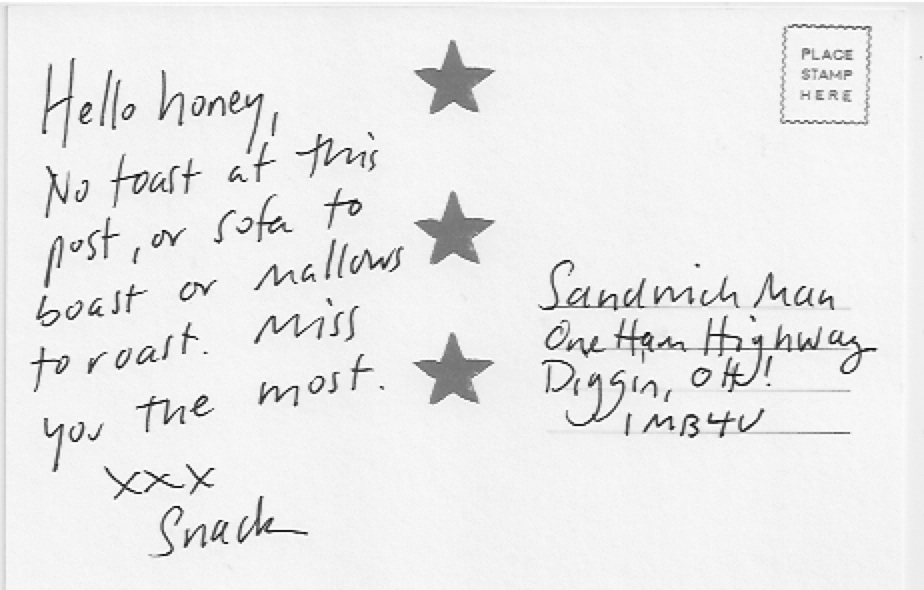 Hello honey,
No toast at this
post, or sofa to
boast or mallows
to roast. Miss
you the most.
xxx
Snack
PLACE
STAMP
HERE
Sandwich Man
One Ham Highway
Diggin, OH!
1MB4U